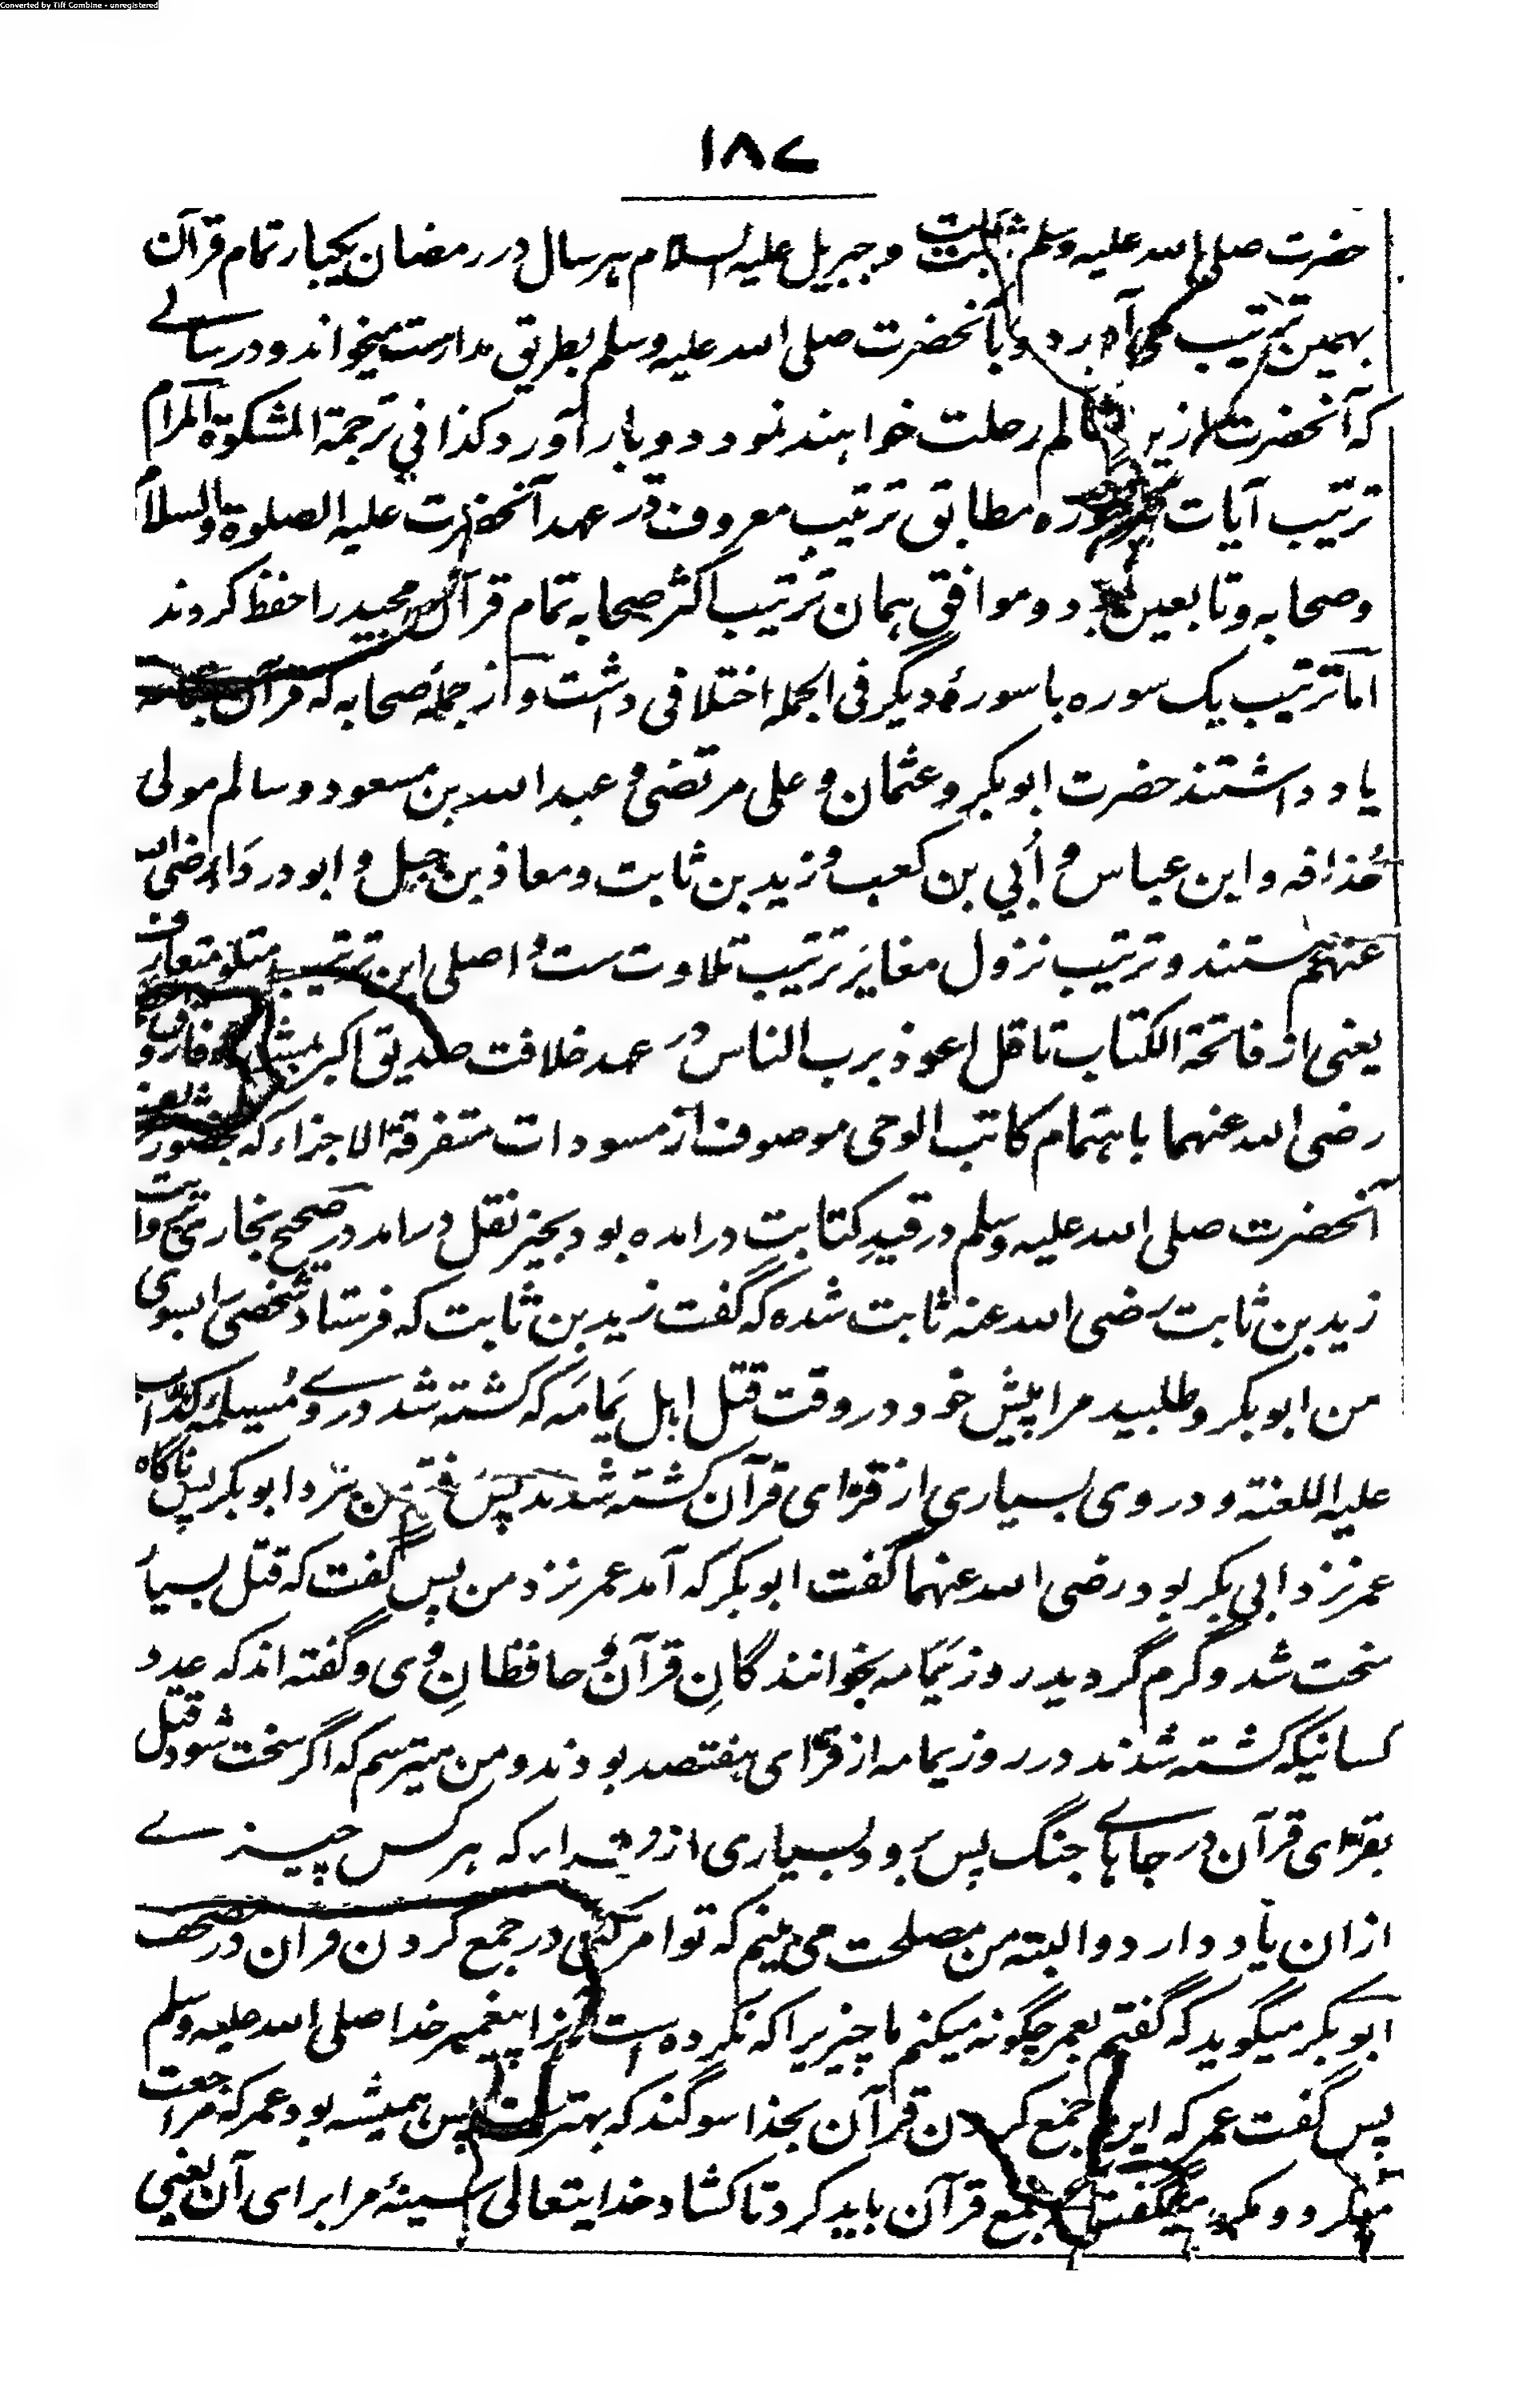 Converted by Tiff Combine - unregistered
١٨٧
حضرت صلی الله علیه وسلم و جبریل علیه السلام هر سال در رمضان یکبار تمام قرآن
بهمین ترتیب می آورد و با آنحضرت صلی الله علیه وسلم بطریق مدارست میخواند و در سالے
که آنحضرت ازین عالم رحلت خواهند نمود دو بار آورد کذا في ترجمة المشکوة المرام
ترتیب آیات هر سوره مطابق ترتیب معروف در عهد آنحضرت علیه الصلوة والسلام
و صحابه و تابعین بود و موافق همان ترتیب اکثر صحابه تمام قرآن مجید را حفظ کردند
اما ترتیب یک سوره با سورهٔ دیگر فی الجمله اختلافی داشت و از جملهٔ صحابه که قرآن
یاد داشتند حضرت ابوبکر و عثمان و علی مرتضی و عبد الله بن مسعود و سالم مولی
حُذافه و ابن عباس و أُبي بن کعب و زید بن ثابت و معاذ بن جبل و ابو درداء رضی الله
عنهم هستند و ترتیب نزول مغایَر ترتیب تلاوت ست و اصلی این ترتیب متلو متعارف
یعنی از فاتحة الکتاب تا قل اعوذ برب الناس در عهد خلافت صدیق اکبر بمشاورت فاروق
رضی الله عنهما باهتمام کاتب الوحی موصوف از مسودات متفرقة الاجزاء که بحضور
آنحضرت صلی الله علیه وسلم در قیدِ کتابتِ درامده بود بحیز نقل درامد در صحیح بخاری
زید بن ثابت رضی الله عنه ثابت شده که گفت زید بن ثابت که فرستاد شخصی را بسوی
من ابوبکر و طلبید مرا پیش خود در وقت قتل اهل یَمامَه که کشته شد در وے مُسیلمهٔ کذّاب
علیه اللعنة و در وی بسیاری از قرّای قرآن کشته شدند پس رفتم من نزد ابوبکر پس ناگاه
عمر نزد ابی بکر بود رضی الله عنهما گفت ابوبکر که آمد عمر نزد من پس گفت که قتل بسیار
سخت شد و گرم گردید روز یَمَامه بخوانندگانِ قرآن و حافظانِ وی و گفته اند که عدد
کسانیکه کشته شدند در روز یمامه از قرّای هفتصد بودند و من میترسم که اگر سخت شود قتل
بقرّای قرآن در جاهاے جنگ پس برود بسیاری از قرآن که هر کس چیزے
ازان یاد دارد و البته من مصلحت می بینم که تو امر کنی در جمع کردن قرآن در مصحف
ابوبکر میگوید که گفتم بعمر چگونه میکنم ما چیزیرا که نکرده است آنرا پیغمبر خدا صلی الله علیه وسلم
پس گفت عمر که این جمع کردن قرآن بخدا سوگند که بهتر است پس همیشه بود عمر که مراجعت
میکرد و میگفت جمع قرآن باید کرد تا کشاد خدایتعالی سینهٔ مرا برای آن یعنی